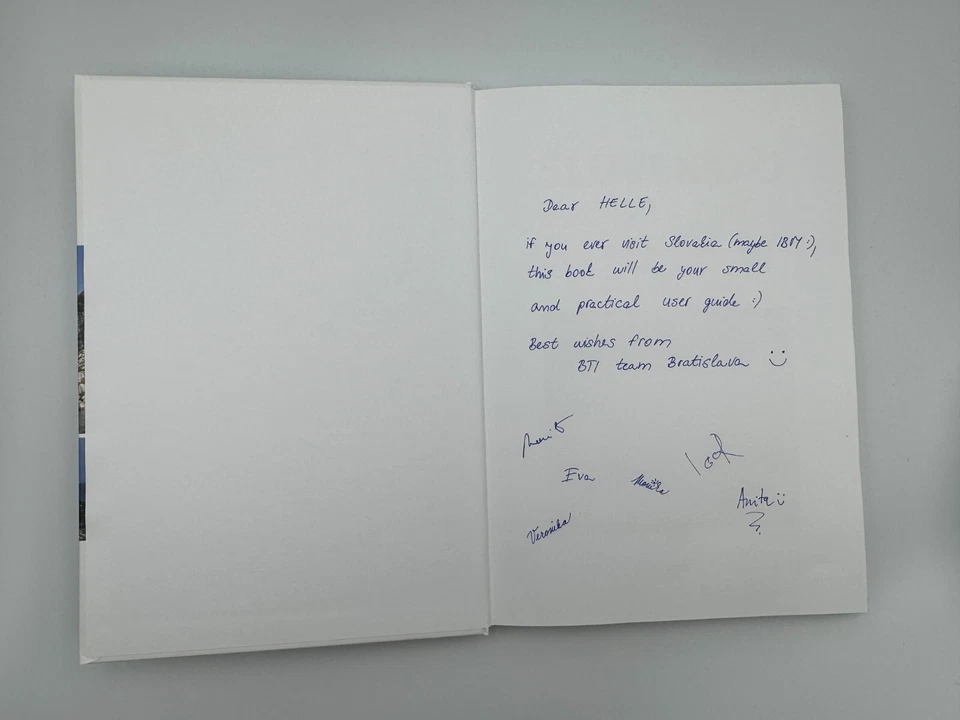 Dear HELLE,
if you ever visit Slovakia (maybe IBM :),
this book will be your small
and practical user guide :)
Best wishes from
BTI team Bratislava
Eva
Anita
Veronika